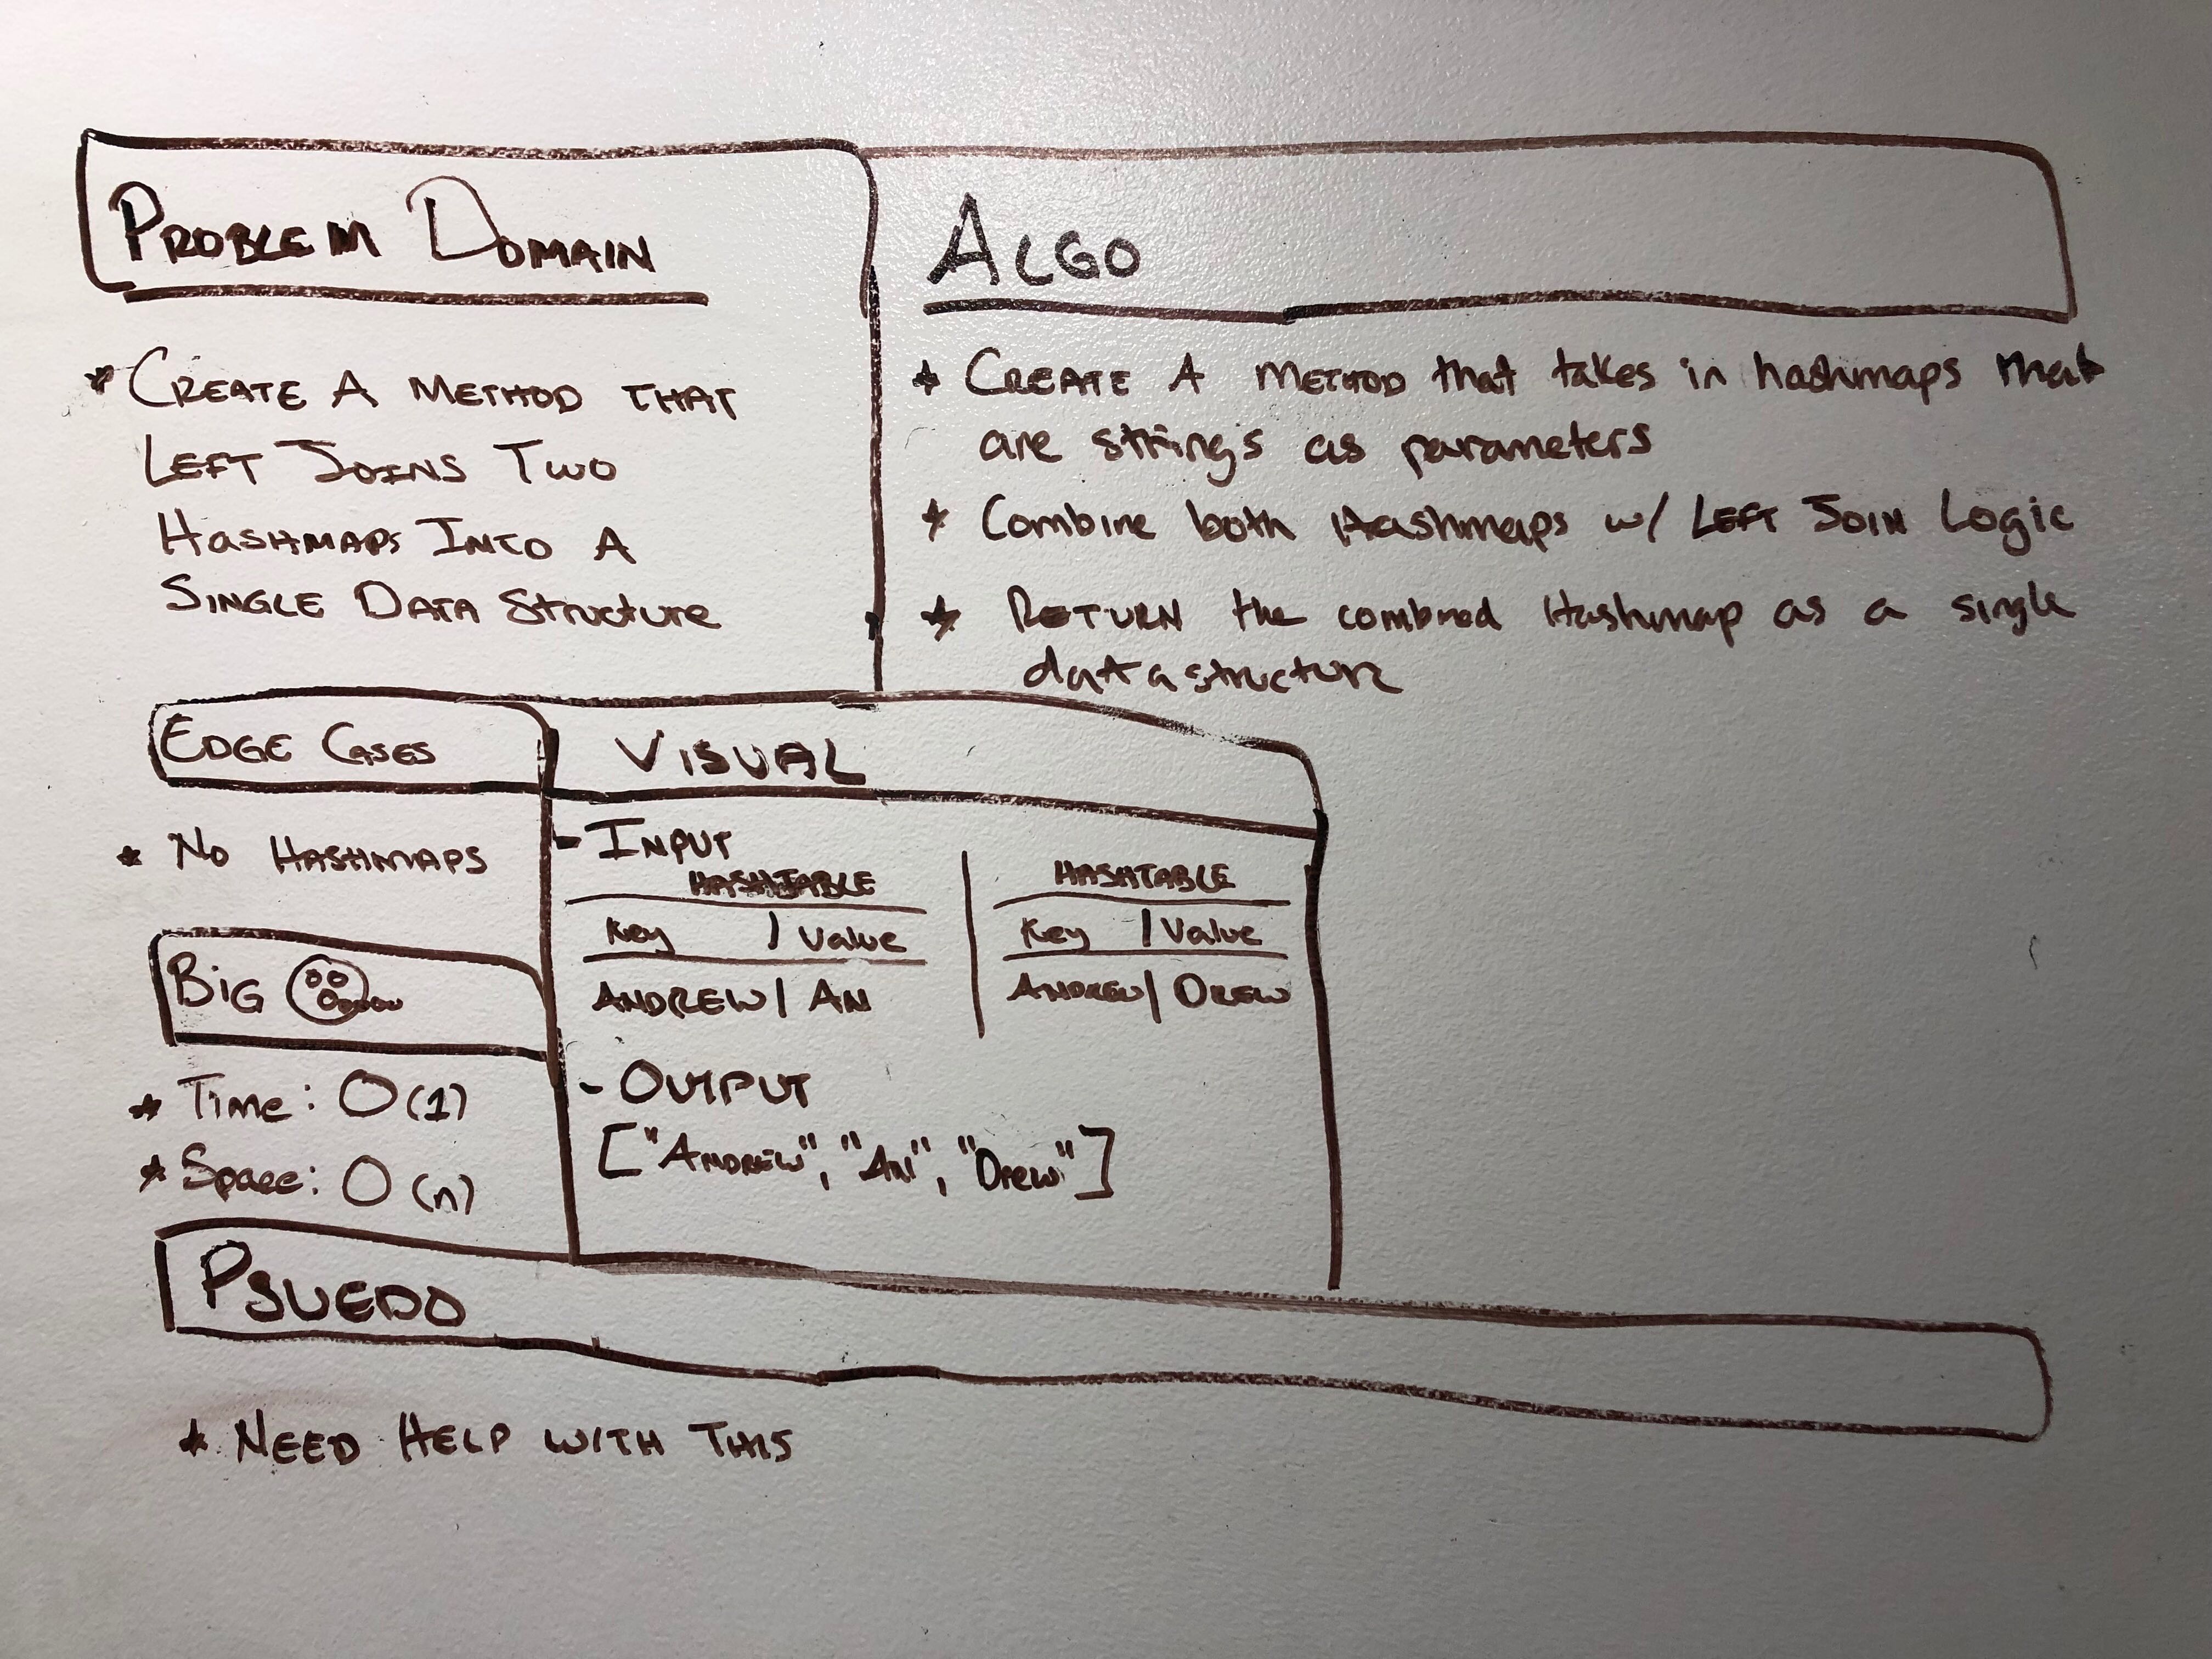 PROBLEM DOMAIN
* CREATE A METHOD THAT
LEFT JOINS TWO
HASHMAPS INTO A
SINGLE DATA Structure
ALGO
* CREATE A METHOD that takes in hashmaps that
are strings as parameters
* Combine both Hashmaps w/ LEFT JOIN Logic
* RETURN the combined Hashmap as a single
data structure
EDGE CASES
* NO HASHMAPS
BIG
* Time: O(1)
* Space: O(n)
VISUAL
- INPUT
HASHTABLE
Key | Value
ANDREW | AN
HASHTABLE
Key | Value
ANDREW | DREW
- OUTPUT
["ANDREW", "AN", "Drew"]
PSUEDO
* NEED HELP WITH THIS